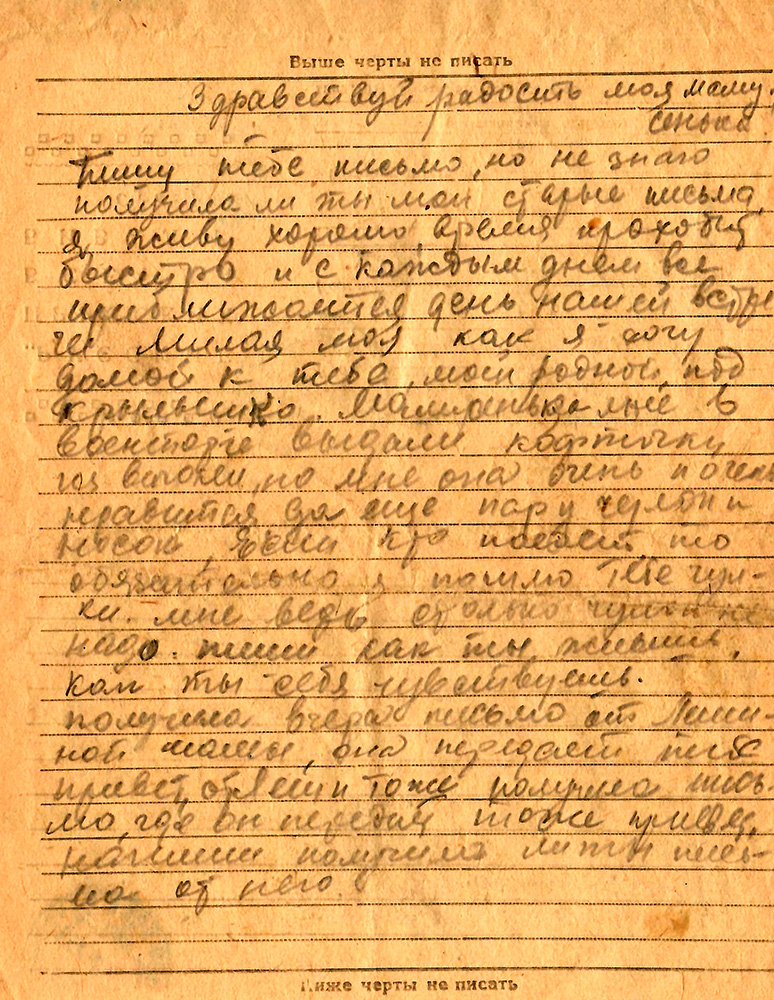 Выше черты не писать
Здравствуй радость моя маму-
сенька
Пишу тебе письмо, но не знаю
получила ли ты мои старые письма,
я живу хорошо, время проходит
быстро и с каждым днем все
приближается день нашей встре
чи Милая моя как я хочу
домой к тебе, мой родной, под
крылышко. Мамиленька мне в
Военторге выдали кофточку
но мне она очень и очень
нравится да еще пару чулок и
носки, Если кто поедет, то
обязательно я пошлю Тебе чул-
ки. мне ведь столько чулок не
надо. пиши как ты живешь,
как ты себя чувствуешь.
получила вчера письмо от Лёши-
ной мамы, она передает тебе
привет, от Лёши тоже получила пись-
мо, где он передает тоже привет,
напиши получила ли ты пись-
ма от него.
Ниже черты не писать